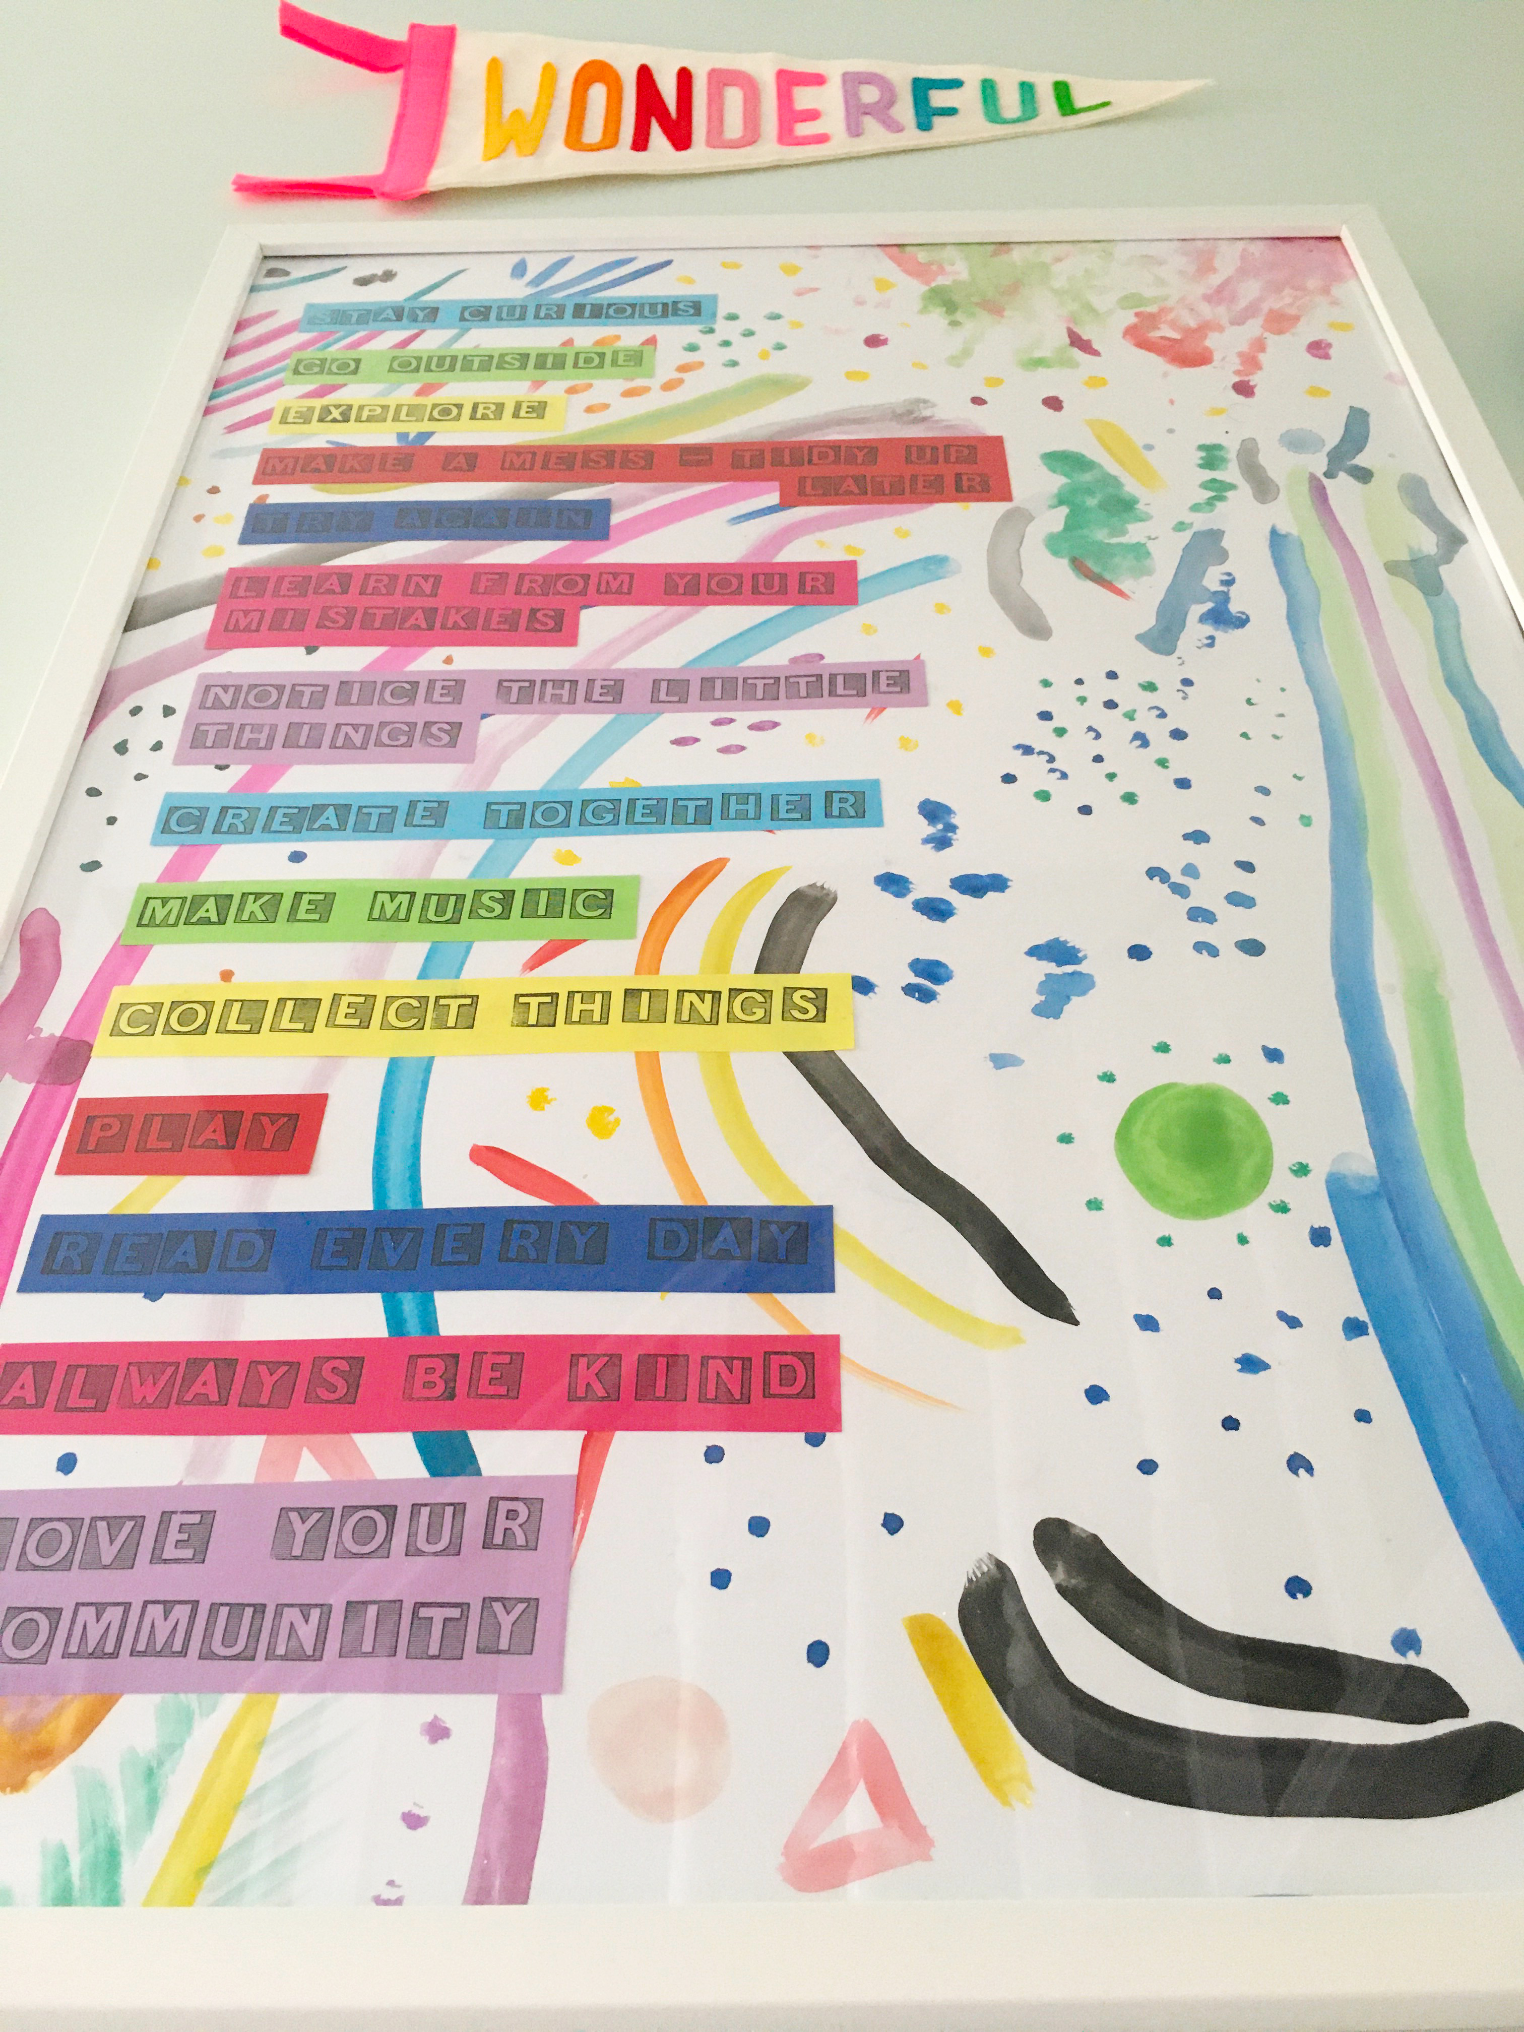 WONDERFUL
STAY CURIOUS
GO OUTSIDE
EXPLORE
MAKE A MESS – TIDY UP
LATER
TRY AGAIN
LEARN FROM YOUR
MISTAKES
NOTICE THE LITTLE
THINGS
CREATE TOGETHER
MAKE MUSIC
COLLECT THINGS
PLAY
READ EVERY DAY
ALWAYS BE KIND
OVE YOUR
OMMUNITY